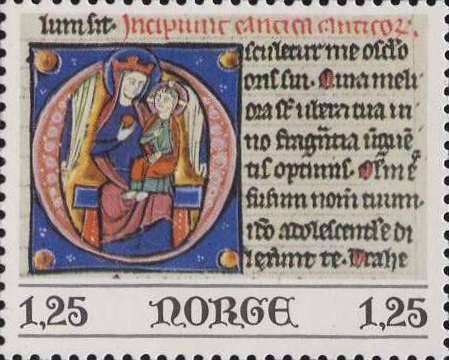 lum sit. Incipiunt cantica canticor.
sculetur me osc̄lo
oris sui. Quia meli
ora st̄ ubera tua ui
no fragrātia ūgūe
tis optimis. Oleū ē
fusum nom̄ tuum.
id̄o adolescentule di
lexerunt te. Trahe
1,25 NORGE 1,25